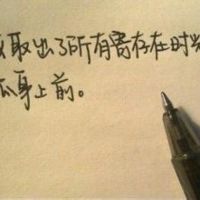 取出了所有寄存在时
瓜身上前。